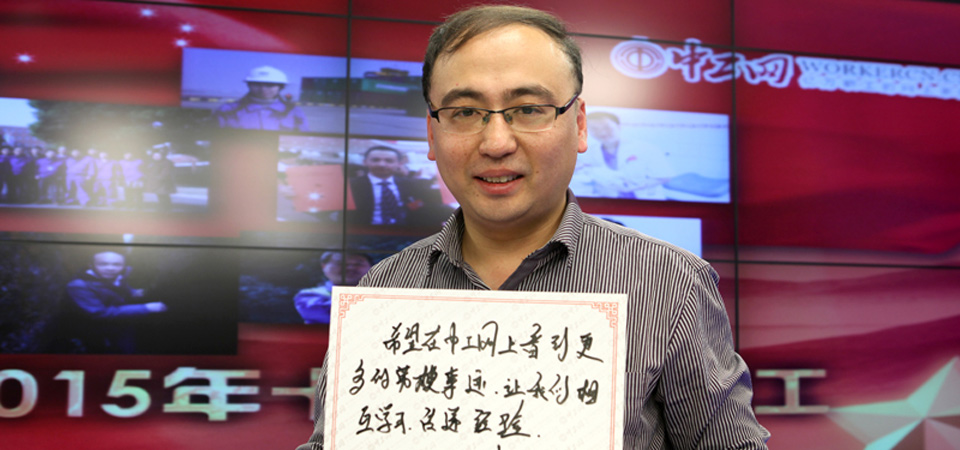 中工网
WORKERCN.C
希望在中工网上看到更
多的劳模事迹.让我们相
互学习.传递经验.
2015年十
工